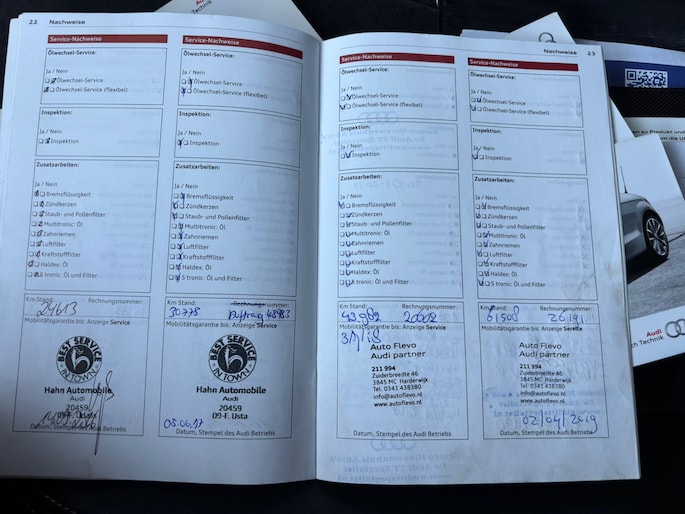 22 Nachweise
Service-Nachweise
Ölwechsel-Service:
Ja / Nein
Ölwechsel-Service
Ölwechsel-Service (flexibel)
Inspektion:
Ja / Nein
Inspektion
Zusatzarbeiten:
Ja / Nein
Bremsflüssigkeit
Zündkerzen
Staub- und Pollenfilter
Multitronic: Öl
Zahnriemen
Luftfilter
Kraftstofffilter
Haldex: Öl
S tronic: Öl und Filter
Km Stand: Rechnungsnummer:
24613
Mobilitätsgarantie bis: Anzeige Service
BEST SERVICE
IN TOWN
Hahn Automobile
Audi
20459
Datum, Stempel des Audi Betriebs
Service-Nachweise
Ölwechsel-Service:
Ja / Nein
Ölwechsel-Service
Ölwechsel-Service (flexibel)
Inspektion:
Ja / Nein
Inspektion
Zusatzarbeiten:
Ja / Nein
Bremsflüssigkeit
Zündkerzen
Staub- und Pollenfilter
Multitronic: Öl
Zahnriemen
Luftfilter
Kraftstofffilter
Haldex: Öl
S tronic: Öl und Filter
Km Stand: Rechnungsnummer:
30778 Auftrag 48983
Mobilitätsgarantie bis: Anzeige Service
BEST SERVICE
IN TOWN
Hahn Automobile
Audi
20459
D9-F. Usta
08.06.17
Datum, Stempel des Audi Betriebs
Nachweise 23
Service-Nachweise
Ölwechsel-Service:
Ja / Nein
Ölwechsel-Service
Ölwechsel-Service (flexibel)
Inspektion:
Ja / Nein
Inspektion
Zusatzarbeiten:
Ja / Nein
Bremsflüssigkeit
Zündkerzen
Staub- und Pollenfilter
Multitronic: Öl
Zahnriemen
Luftfilter
Kraftstofffilter
Haldex: Öl
S tronic: Öl und Filter
Km Stand: Rechnungsnummer:
Mobilitätsgarantie bis: Anzeige Service
Auto Flevo
Audi partner
211 994
Zuiderbreedte 46
3845 MC Harderwijk
Tel. 0341 438380
info@autoflevo.nl
www.autoflevo.nl
Datum, Stempel des Audi Betriebs
Service-Nachweise
Ölwechsel-Service:
Ja / Nein
Ölwechsel-Service
Ölwechsel-Service (flexibel)
Inspektion:
Ja / Nein
Inspektion
Zusatzarbeiten:
Ja / Nein
Bremsflüssigkeit
Zündkerzen
Staub- und Pollenfilter
Multitronic: Öl
Zahnriemen
Luftfilter
Kraftstofffilter
Haldex: Öl
S tronic: Öl und Filter
Km Stand: Rechnungsnummer:
61508 26191
Mobilitätsgarantie bis: Anzeige Service
Auto Flevo
Audi partner
211 994
Zuiderbreedte 46
3845 MC Harderwijk
Tel. 0341 438380
info@autoflevo.nl
www.autoflevo.nl
02/04/2019
Datum, Stempel des Audi Betriebs
Audi
Technik